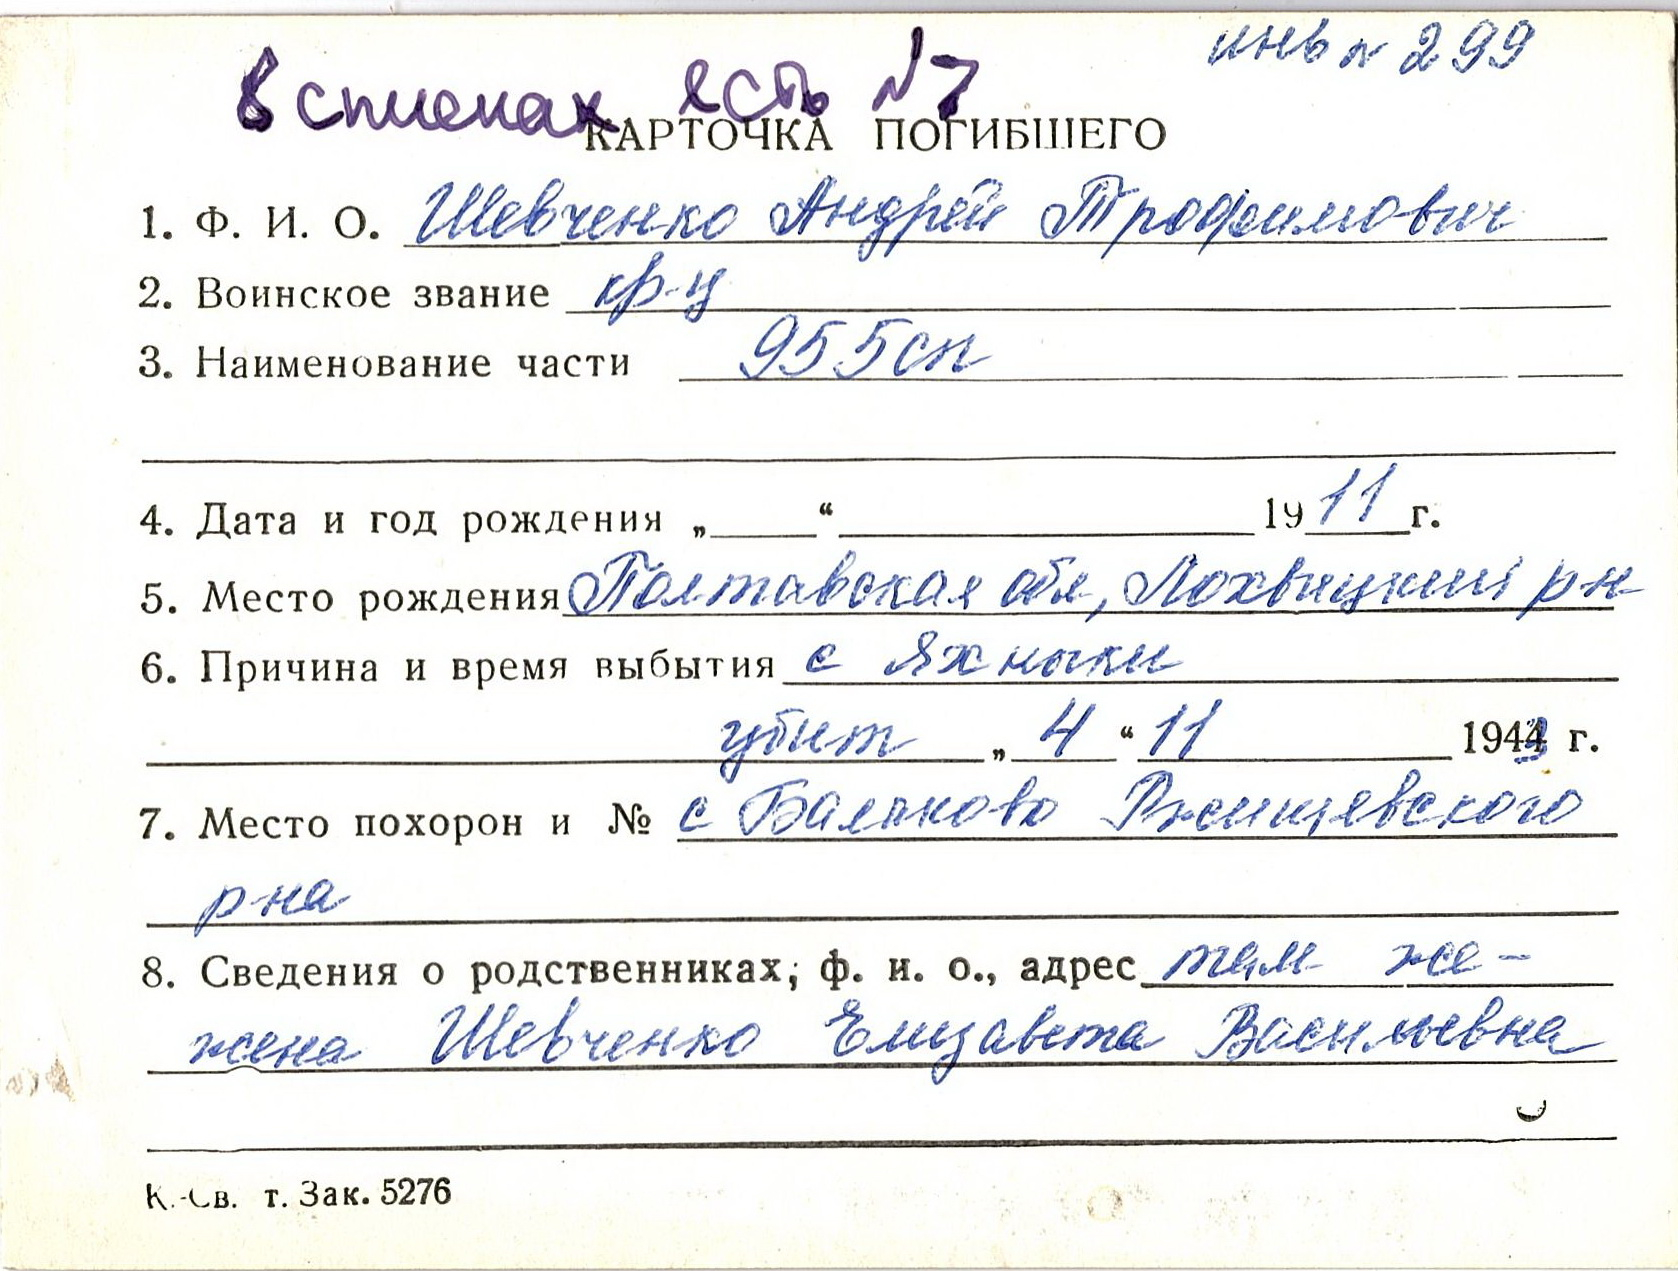 инв № 299
в списках есть №7
КАРТОЧКА ПОГИБШЕГО
1. Ф. И. О. Шевченко Андрей Трофимович
2. Воинское звание кр-ц
3. Наименование части 955сп
4. Дата и год рождения „ “ 1911г.
5. Место рождения Полтавская обл, Лохвицкий р-н
6. Причина и время выбытия с Яхныки
убит „ 4 “ 11 1943 г.
7. Место похорон и № с Балыково Ржищевского
р-на
8. Сведения о родственниках, ф. и. о., адрес там же -
жена Шевченко Елизавета Васильевна
К.-Св. т. Зак. 5276